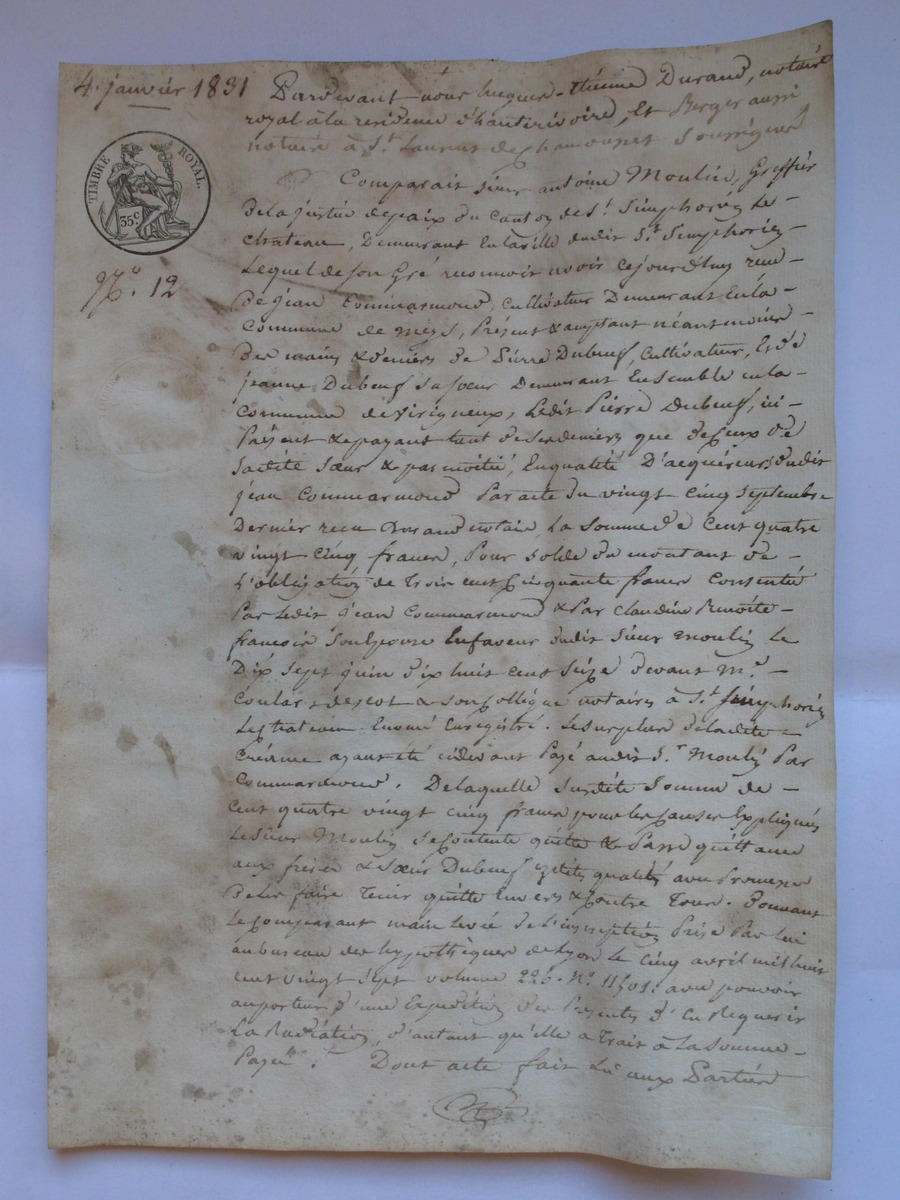 4. janvier 1831
Pardevant nous hugues-étienne Durand, notaire
royal à la residence d'hauterivoire, Et Berger aussi
notaire à St. Laurent de chamousset soussignés
TIMBRE ROYAL.
35c
No. 12
Comparait sieur antoine Moulin, Greffier
de la justice de paix du canton de St. Simphorien Le-
chateau, Demeurant En la ville dudit St. Simphorien-
Lequel de son Gré reconnoit avoir cejourdhuy reçu-
De jean Commarmond, cultivateur Demeurant En la-
Commune de Meys, Présent & acceptant néantmoins-
Des mains & deniers de Pierre Dubeuf, cultivateur, Et de
jeanne Dubeuf sa soeur Demeurant Ensemble en la-
commune de virigneux, Ledit Pierre Dubeuf, ici-
Présent & payant tant de ses deniers que de Ceux de
sadite soeur & par moitié, En qualité D'acquéreurs dudit
jean Commarmond Par acte du vingt cinq septembre
Dernier reçu Durand notaire, La somme de Cent quatre
vingt cinq francs, Pour solde du montant de-
L'obligation de Trois cent Cinquante francs Consentie
Par Ledit jean Commarmond & Par Claudine Benoite-
françoise son Epouse En faveur dudit sieur moulin Le
Dix sept juin dix huit cent seize devant Me.-
& son Collègue notaires à St. simphorien
Le chateau Enregistré. Le surplus de ladite-
Créance ayant été cidevant Payé audit Sr. Moulin Par
Commarmond. De laquelle susdite somme de-
Cent quatre vingt cinq francs pour les causes Expliquées
Le sieur Moulin se Contente quitte & Passe quittance
aux frère & soeur Dubeuf Esdites qualités avec Promesse
De les faire Tenir quitte Envers & Contre Tous. Donnant
Le comparant main levée de L'inscription Prise Par Lui
au bureau des hypothèques de Lyon Le cinq avril mil huit
cent vingt sept volume 226. No. avec pouvoir
au porteur d'une Expédition des Présentes d'En Requérir
La Radiation, d'autant qu'elle a Trait à La Somme-
Payée. Dont acte fait Lu aux Parties